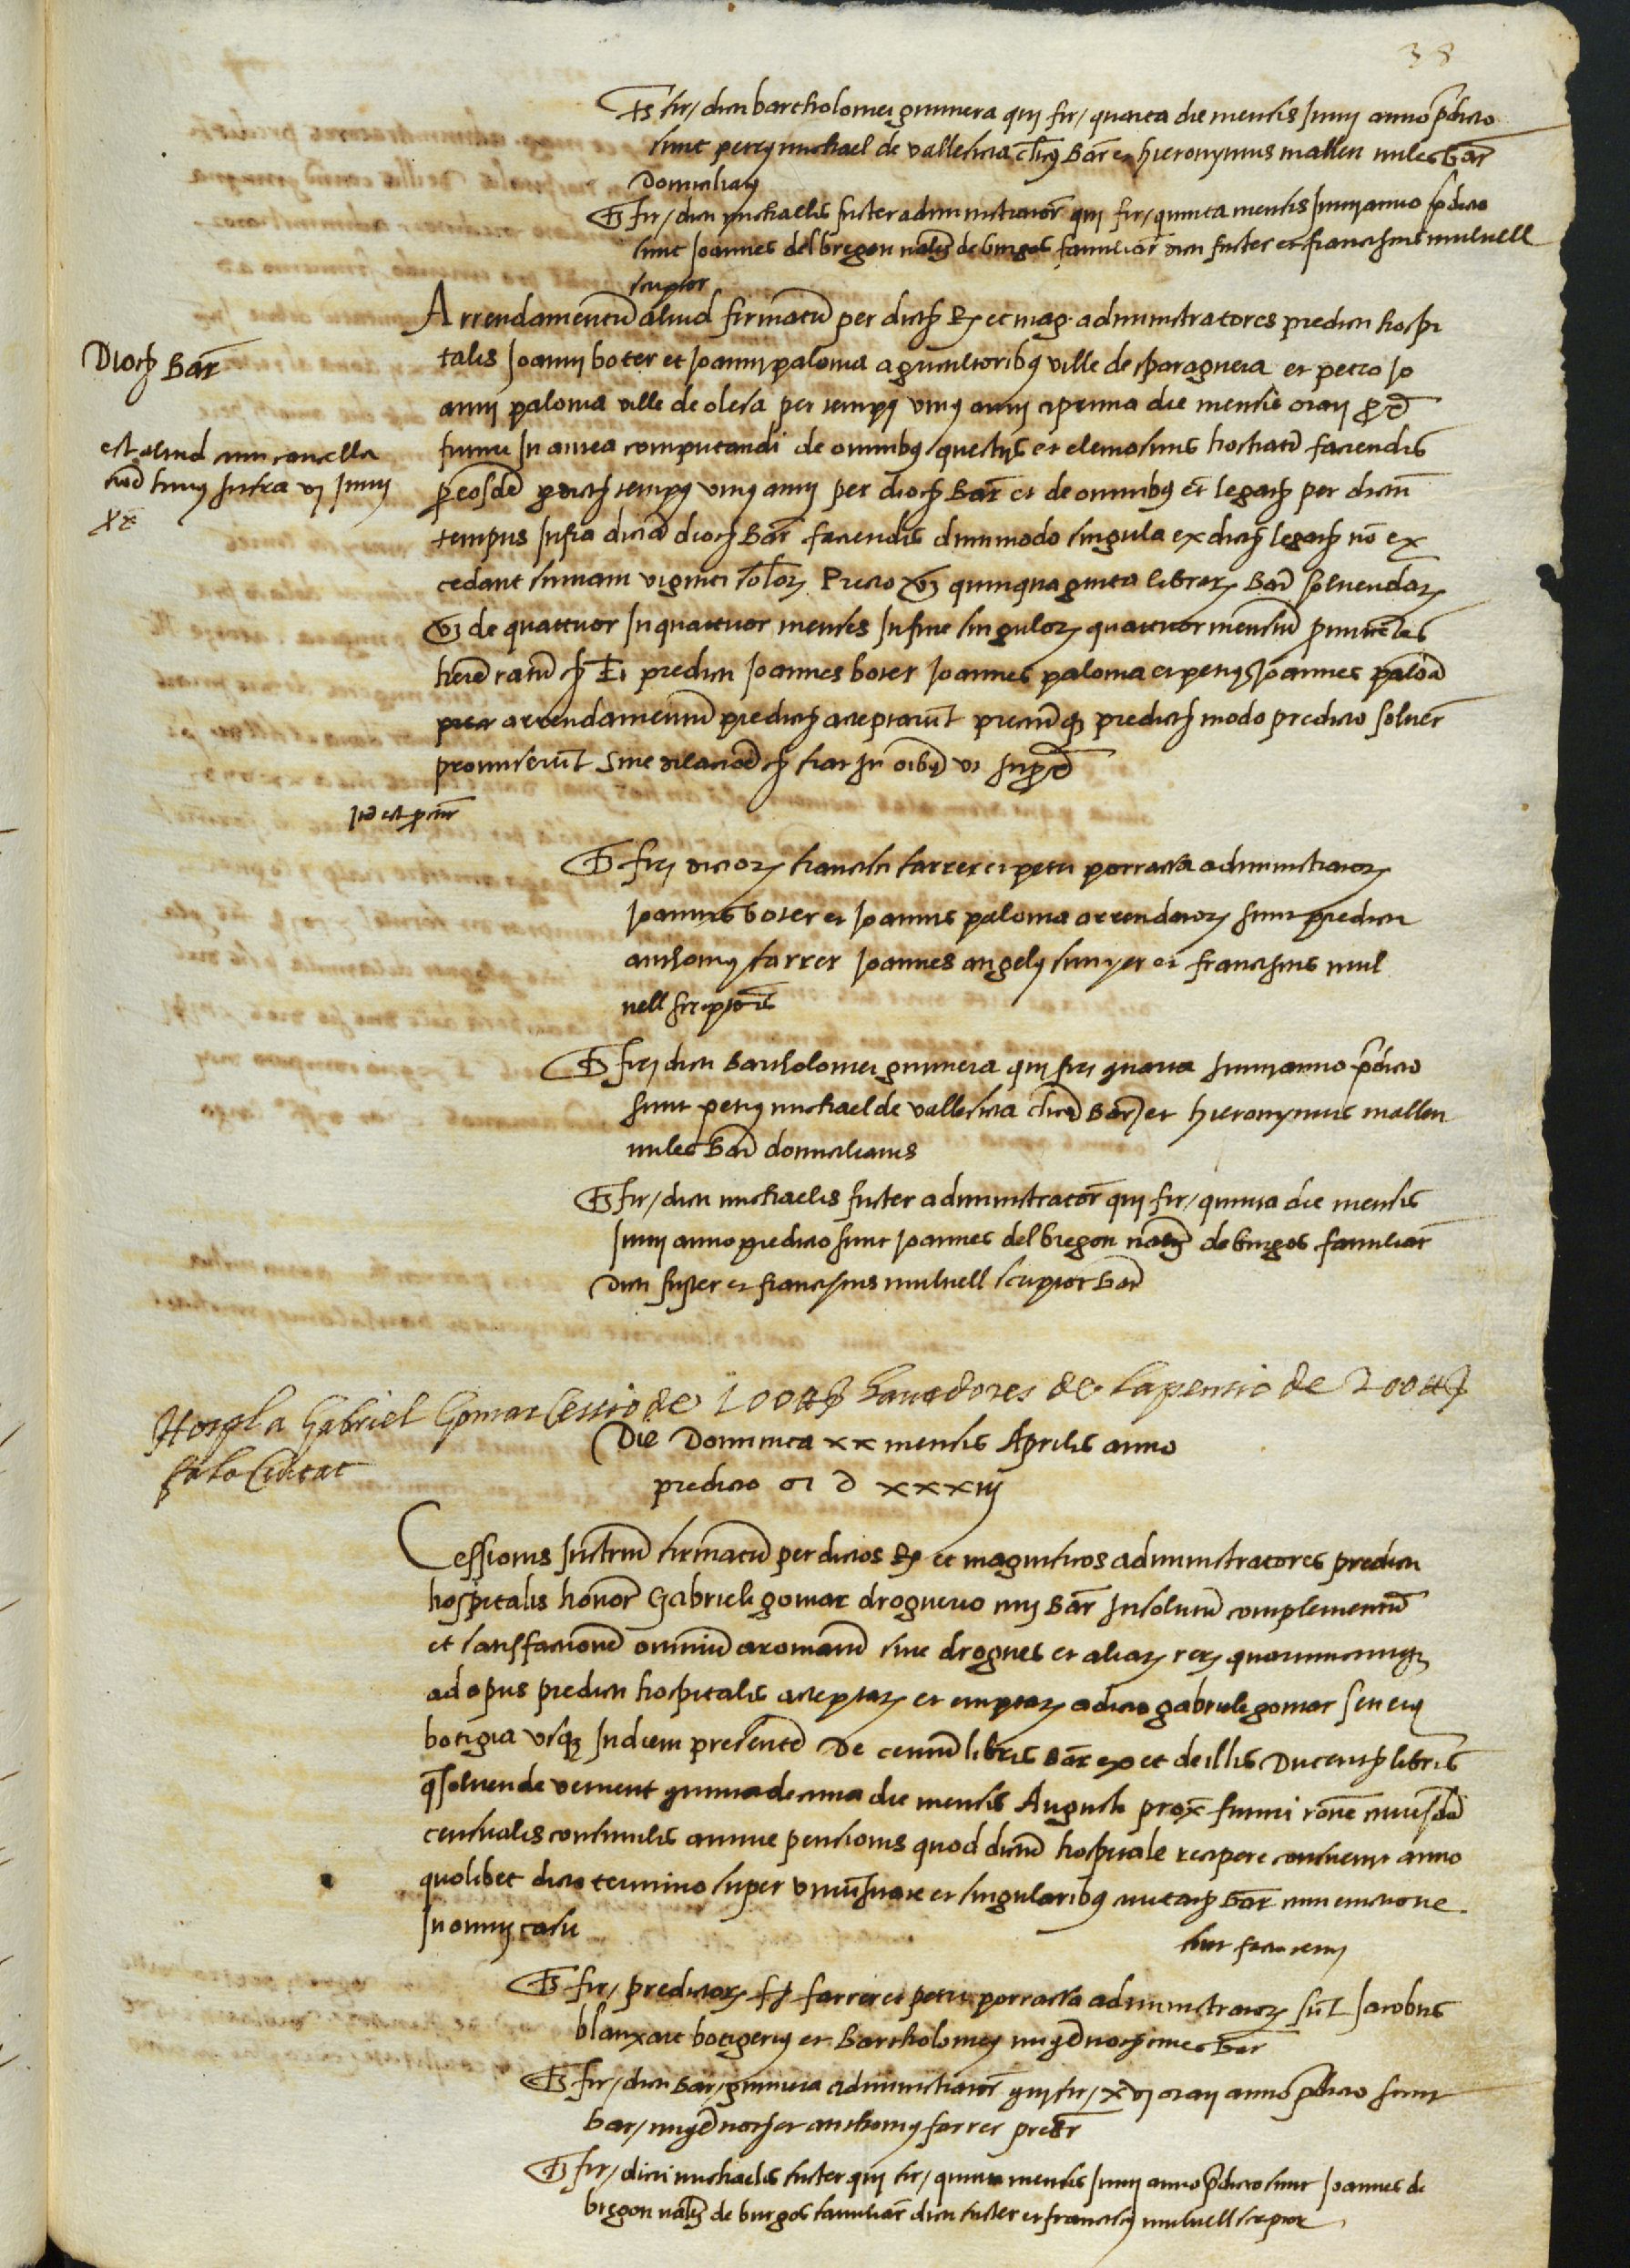 38
Ts fir / dicti bartholomei gumiera qui fir / quarta die mensis Junii anno p̄dicto
sunt petrus michael de vallesicca clicus Bar̄ et hieronymus mallen miles bar̄
Domiciliatus
Ts fir / dicti michaelis fuster administrator̄ qui fir / quinta mensis Junii anno p̄dicto
sunt Joannes del bregon nal̄is de burgos familiar̄ dicti fuster et franciscus mulnell
scriptor
Arrendamentū aliud firmatū per dictos R. et mag. administratores predicti hospi
Dioc Bar̄
talis Joanni boter et Joanni paloma agricultoribus ville de sparaguera et petro Jo
anni paloma ville de olesa per tempus unius anni a prima die mensis maii pro
est aliud cum cancella
fituri in antea computandi de omnibus questiis et elemosinis hostiatī faciendis
infra vi Junii
per eosdē dictū tempus unius anni per dioc Bar̄ et de omnibus et legatis per dictū
tempus infra dictā dioc Bar̄ faciendis dummodo singula ex dictis legatis nō ex
cedant summam viginti solor̄. Precio quinquaginta librar̄ Bar̄ solvendar̄
de quattuor in quattuor menses in fine singulor̄ quattuor mensiū
Et predicti Joannes boter Joannes paloma et petrus Joannes palomā
arrendamentū predictū acceptarūt preciūq predictū modo predicto solver̄
promiserūt sine dilacione fiat in oībus ut supra
Ts fir dictor̄ francisci farrer et petri porrassa administrator̄
Joannis boter et Joannis paloma arrendator̄ sunt predicti
anthonius farrer Joannes angelus sunyer et franciscus mul
nell scriptores
Ts fir dicti Bartholomei gumiera qui fir quarta Junii anno p̄dicto
sunt petrus michael de vallesicca clicus Bar̄ et hieronymus mallen
miles Bar̄ domiciliatus
Ts fir / dicti michaelis fuster administrator̄ qui fir / quinta die mensis
Junii anno predicto sunt Joannes del bregon nal̄is de burgos familiar̄
dicti fuster et franciscus mulnell scriptor bar̄
Hospl a Gabriel Gomar Cessio de 100 ₶ havedores de la pensio de 200 ₶
sobre la Ciutat
Die Dominica xx mensis Aprilis anno
predicto M D xxxiii
Cessionis instrum̄ firmatū per dictos R. et magnificos administratores predicti
hospitalis honor̄ Gabrieli gomar droguerio civi Bar̄ in solutū complementū
et satisfactionē omniū aromatū sive drogues et aliar̄ rer̄ quarumcumq
ad opus predicti hospitalis acceptar̄ et emptar̄ a dicto gabriele gomar seu eius
botigia usq in diem presentē De centum libris Bar̄ ex et de illis Ducentis libris
q̄ solvende venient quintadecima die mensis Augusti prox̄ futuri rōne cuiusdā
censualis consimilis annue pensionis quod dictū hospitale recipere consuevit anno
quolibet dicto termino super universitate et singularibus civitatis bar̄ cum evictione
in omni casu
Ts fir / predictor̄ farrer et petri porrassa administrator̄ sūt Jacobus
blanxart botigerius et Bartholomeus cives bar̄
Ts fir / dicti Bar / gumiera administrator̄ qui fir / xvi maii anno p̄dicto sunt
Bar / et anthonius farrer presbr̄
Ts fir / dicti michaelis fuster qui fir / quinta mensis Junii anno p̄dicto sunt Joannes de
bregon nal̄is de burgos familiar̄ dicti fuster et franciscus mulnell scriptor